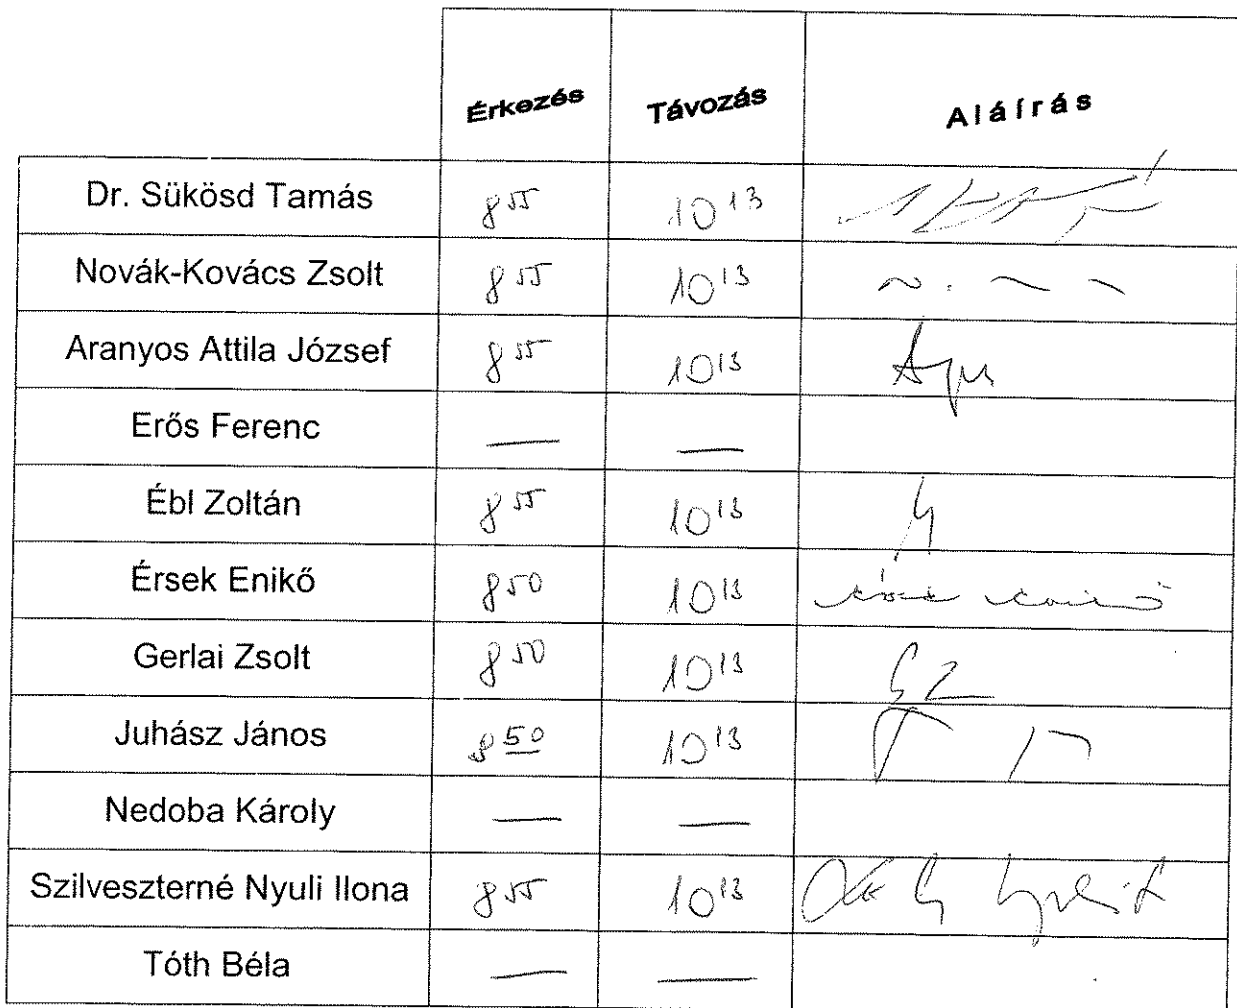 Érkezés Távozás Aláírás
Dr. Sükösd Tamás 8 55 10 13
Novák-Kovács Zsolt 8 55 10 13
Aranyos Attila József 8 55 10 13
Erős Ferenc — —
Ébl Zoltán 8 55 10 13
Érsek Enikő 8 50 10 13
Gerlai Zsolt 8 50 10 13 GZ
Juhász János 8 50 10 13
Nedoba Károly — —
Szilveszterné Nyuli Ilona 8 55 10 13
Tóth Béla — —